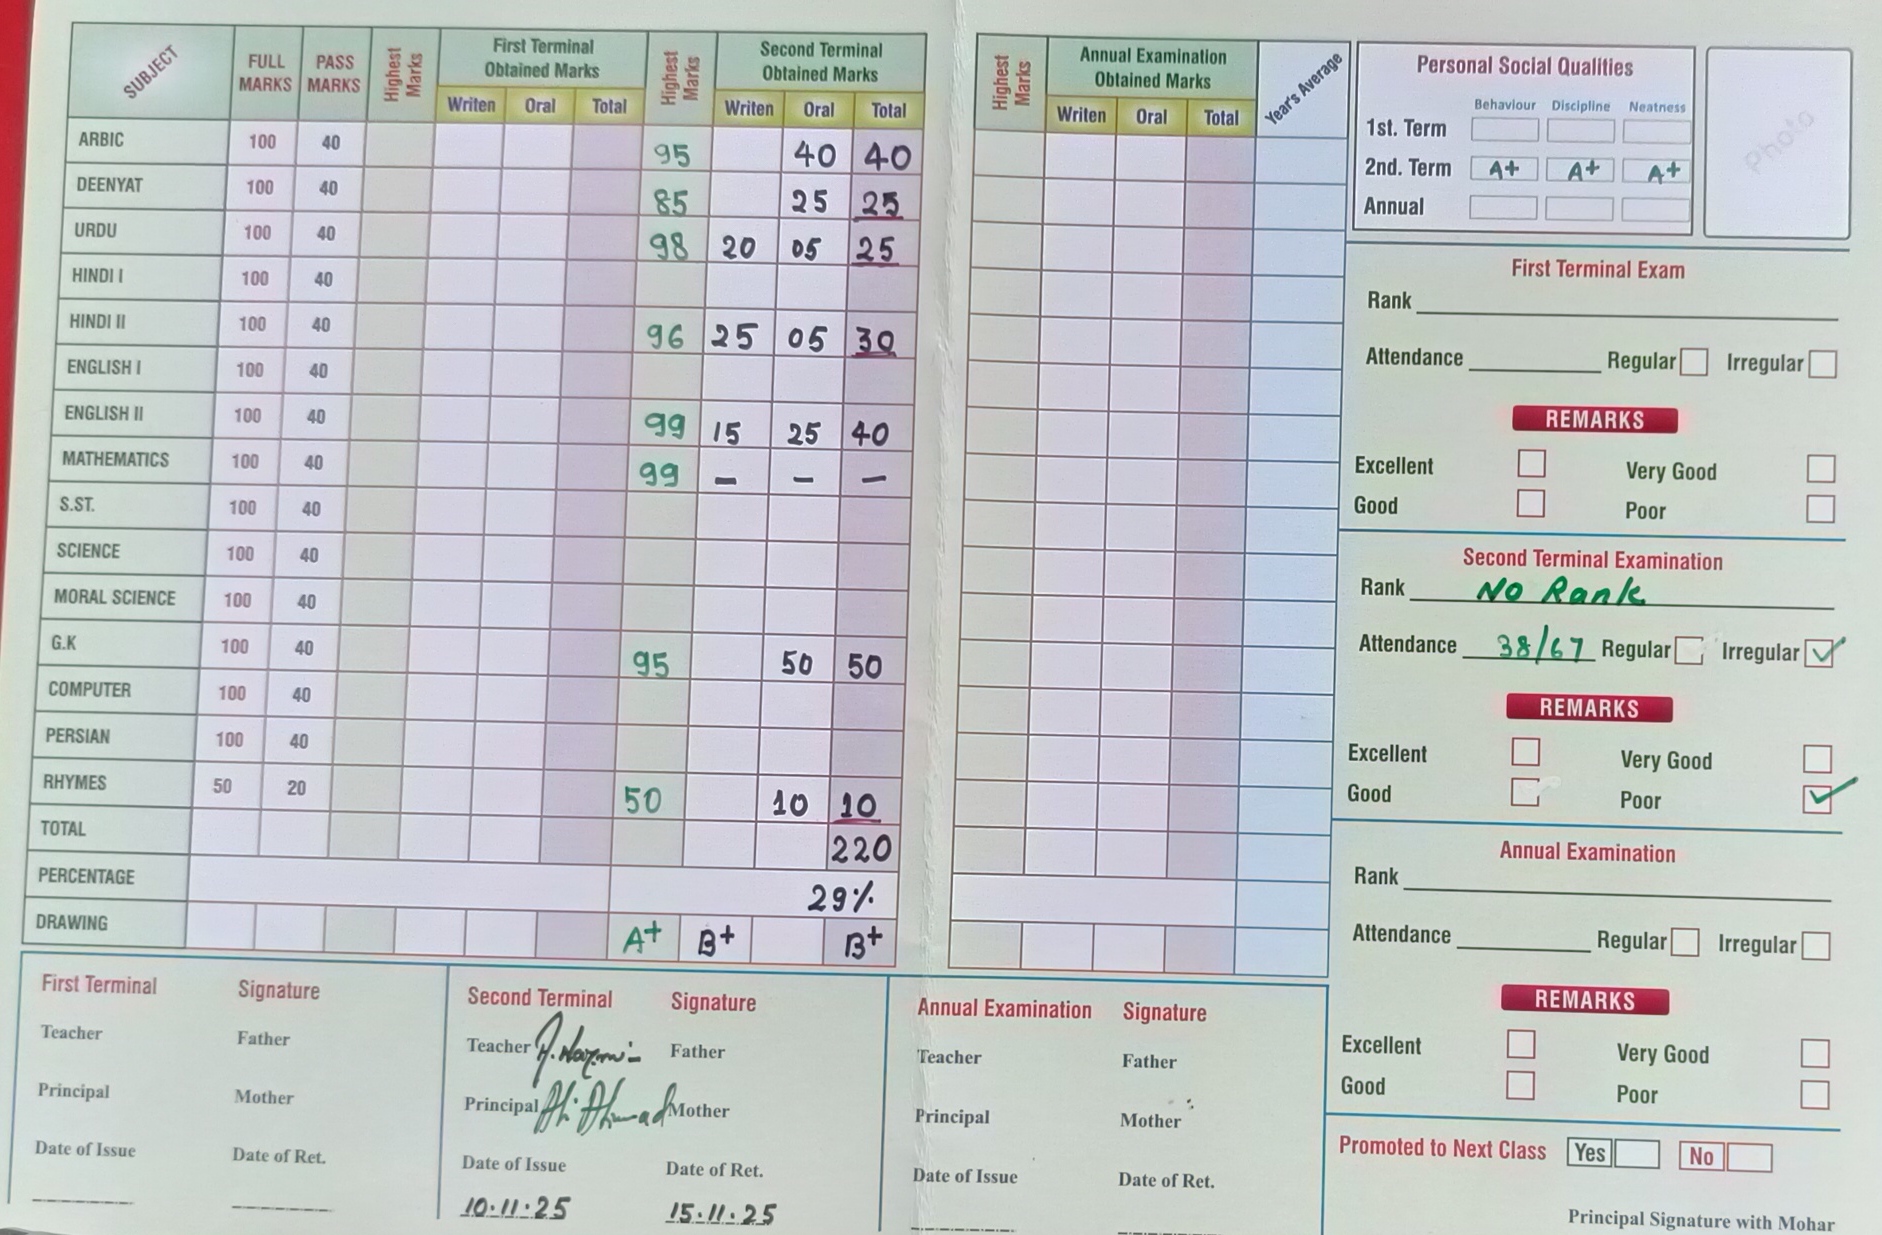 SUBJECT FULL MARKS PASS MARKS Highest Marks First Terminal Obtained Marks Highest Marks Second Terminal Obtained Marks
Writen Oral Total Writen Oral Total
ARBIC 100 40 95 40 40
DEENYAT 100 40 85 25 25
URDU 100 40 98 20 05 25
HINDI I 100 40
HINDI II 100 40 96 25 05 30
ENGLISH I 100 40
ENGLISH II 100 40 99 15 25 40
MATHEMATICS 100 40 99 – – –
S.ST. 100 40
SCIENCE 100 40
MORAL SCIENCE 100 40
G.K 100 40 95 50 50
COMPUTER 100 40
PERSIAN 100 40
RHYMES 50 20 50 10 10
TOTAL 220
PERCENTAGE 29%
DRAWING A+ B+ B+
Highest Marks Annual Examination Obtained Marks Year's Average
Writen Oral Total
Personal Social Qualities
Behaviour Discipline Neatness
1st. Term
2nd. Term A+ A+ A+
Annual
Photo
First Terminal Exam
Rank
Attendance Regular Irregular
REMARKS
Excellent Very Good
Good Poor
Second Terminal Examination
Rank No Rank
Attendance 38/67 Regular Irregular ✓
REMARKS
Excellent Very Good
Good Poor ✓
Annual Examination
Rank
Attendance Regular Irregular
REMARKS
Excellent Very Good
Good Poor
Promoted to Next Class Yes No
Principal Signature with Mohar
First Terminal Signature
Teacher Father
Principal Mother
Date of Issue Date of Ret.
Second Terminal Signature
Teacher Father
Principal Mother
Date of Issue Date of Ret.
10.11.25 15.11.25
Annual Examination Signature
Teacher Father
Principal Mother
Date of Issue Date of Ret.